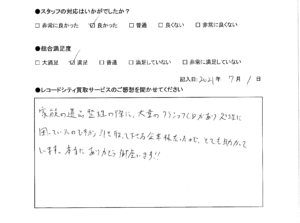 ●スタッフの対応はいかがでしたか?
□非常に良かった ☑良かった □普通 □良くない □非常に良くない
●総合満足度
□大満足 ☑満足 □普通 □満足していない □非常に満足していない
記入日:2021年 7月 1日
●レコードシティ買取サービスのご感想を聞かせてください
家族の遺品整理の際に、大量のクラシックCDがあり処理に
困っていたのですが、引き取って下さる企業様だったので、とても助かって
います。本当にありがとう御座います!!